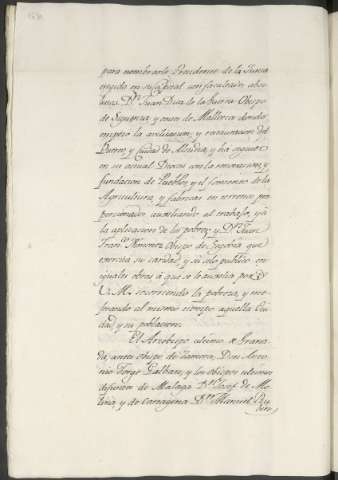 para nombrarle Presidente de la Junta
erigida en su Capital con facultades abso
lutas. Dⁿ Juan Diaz de la Guerra Obispo
de Siguenza, y antes de Mallorca donde
empezó la poblacion, y restauracion del
Puerto, y Ciudad de Alcudia, y ha seguido
en su actual Diocesi con la renovacion, y
fundacion de Pueblos, y el fomento de la
Agricultura, y fabricas en terrenos pro
porcionados auxiliando al trabajo, y á
la aplicacion de los pobres; y Dⁿ Juan
Franᶜᵒ Ximenez Obispo de Segovia que
exercita su caridad, y su celo publico en
iguales obras á que se le auxilia por
V. M. socorriendo la pobreza, y me
jorando al mismo tiempo aquella Ciu
dad, y su poblacion.
El Arzobispo ultimo de Grana
da, antes Obispo de Zamora, Don Anto
nio Jorge Galban, y los Obispos ultimos
difuntos de Malaga Dⁿ Josef de Mo
lina, y de Cartagena Dⁿ Manuel Ru
bin